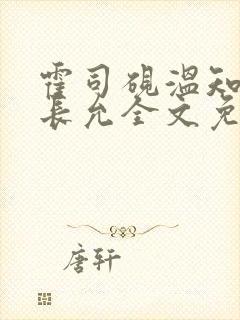 霍司砚温知
长允全文免
唐轩